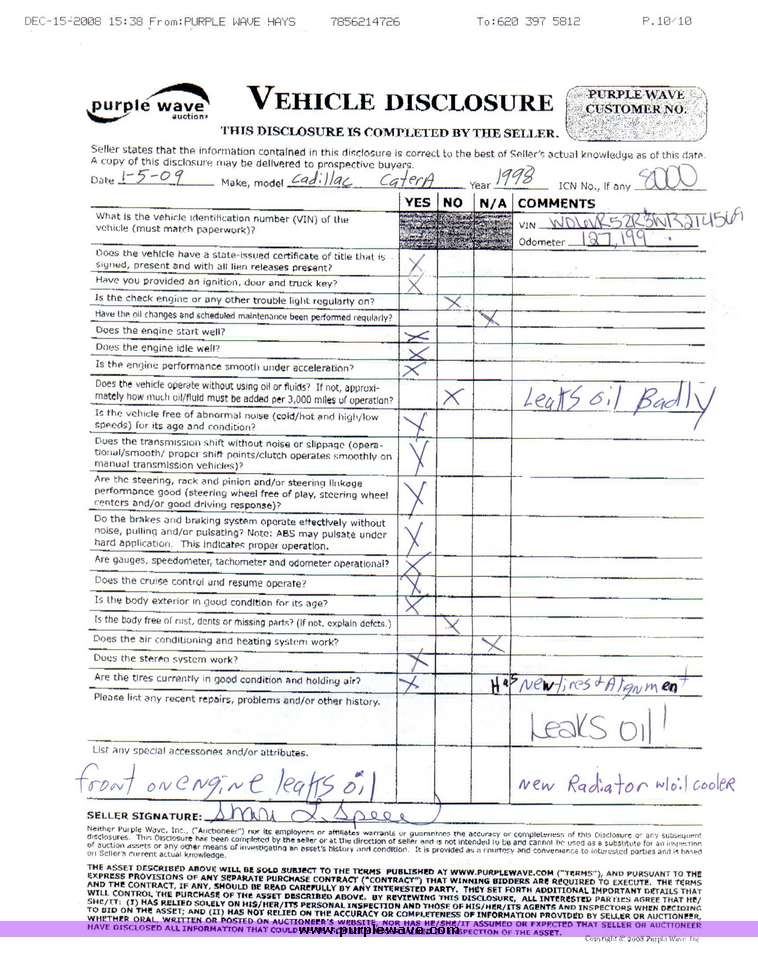 DEC-15-2008 15:38 From:PURPLE WAVE HAYS 7856214726 To:620 397 5812 P.10/10
purple wave
auction
VEHICLE DISCLOSURE
PURPLE WAVE
CUSTOMER NO.
THIS DISCLOSURE IS COMPLETED BY THE SELLER.
Seller states that the information contained in this disclosure is correct to the best of Seller's actual knowledge as of this date.
A copy of this disclosure may be delivered to prospective buyers.
Date 1-5-09 Make, model Cadillac CaterA Year 1998 ICN No., If any 8000
YES NO N/A COMMENTS
What is the vehicle identification number (VIN) of the
vehicle (must match paperwork)?
VIN
Odometer 127,199
Does the vehicle have a state-issued certificate of title that is
signed, present and with all lien releases present? X
Have you provided an ignition, door and truck key? X
Is the check engine or any other trouble light regularly on? X
Have the oil changes and scheduled maintenance been performed regularly? X
Does the engine start well? X
Does the engine idle well? X
Is the engine performance smooth under acceleration? X
Does the vehicle operate without using oil or fluids? If not, approxi-
mately how much oil/fluid must be added per 3,000 miles of operation? X Leaks oil Badly
Is the vehicle free of abnormal noise (cold/hot and high/low
speeds) for its age and condition? X
Does the transmission shift without noise or slippage (opera-
tional/smooth/ proper shift points/clutch operates smoothly on
manual transmission vehicles)? X
Are the steering, rack and pinion and/or steering linkage
performance good (steering wheel free of play, steering wheel
centers and/or good driving response)? X
Do the brakes and braking system operate effectively without
noise, pulling and/or pulsating? Note: ABS may pulsate under
hard application. This indicates proper operation. X
Are gauges, speedometer, tachometer and odometer operational? X
Does the cruise control und resume operate? X
Is the body exterior in good condition for its age? X
Is the body free of rust, dents or missing parts? (If not, explain defcts.) X
Does the air conditioning and heating system work? X
Does the stereo system work? X
Are the tires currently in good condition and holding air? X Has New tires & Alignment
Please list any recent repairs, problems and/or other history.
Leaks oil!
List any special accessories and/or attributes.
front on engine leaks oil
New Radiator w/oil cooler
SELLER SIGNATURE:
Neither Purple Wave, Inc., ("Auctioneer") nor its employees or affiliates warrants or guarantees the accuracy or completeness of this Disclosure or any subsequent
disclosures. This Disclosure has been completed by the seller or at the direction of seller and is not intended to be and cannot be used as a substitute for an inspection
of auction assets or any other means of investigating an asset's history and condition. It is provided as a courtesy and convenience to interested parties and is based
on Seller's current actual knowledge.
THE ASSET DESCRIBED ABOVE WILL BE SOLD SUBJECT TO THE TERMS PUBLISHED AT WWW.PURPLEWAVE.COM ("TERMS"), AND PURSUANT TO THE
EXPRESS PROVISIONS OF ANY SEPARATE PURCHASE CONTRACT ("CONTRACT") THAT WINNING BIDDERS ARE REQUIRED TO EXECUTE. THE TERMS
AND THE CONTRACT, IF ANY, SHOULD BE READ CAREFULLY BY ANY INTERESTED PARTY. THEY SET FORTH ADDITIONAL IMPORTANT DETAILS THAT
WILL CONTROL THE PURCHASE OF THE ASSET DESCRIBED ABOVE. BY REVIEWING THIS DISCLOSURE, ALL INTERESTED PARTIES AGREE THAT HE/
SHE/IT: (I) HAS RELIED SOLELY ON HIS/HER/ITS PERSONAL INSPECTION AND THOSE OF HIS/HER/ITS AGENTS AND INSPECTORS WHEN DECIDING
TO BID ON THE ASSET; AND (II) HAS NOT RELIED ON THE ACCURACY OR COMPLETENESS OF INFORMATION PROVIDED BY SELLER OR AUCTIONEER,
WHETHER ORAL, WRITTEN OR POSTED ON AUCTIONEER'S WEBSITE, NOR HAS HE/SHE/IT ASSUMED OR EXPECTED THAT SELLER OR AUCTIONEER
HAVE DISCLOSED ALL INFORMATION THAT INSPECTION OF THE ASSET.
www.purplewave.com
Copyright © 2008 Purple Wave, Inc.